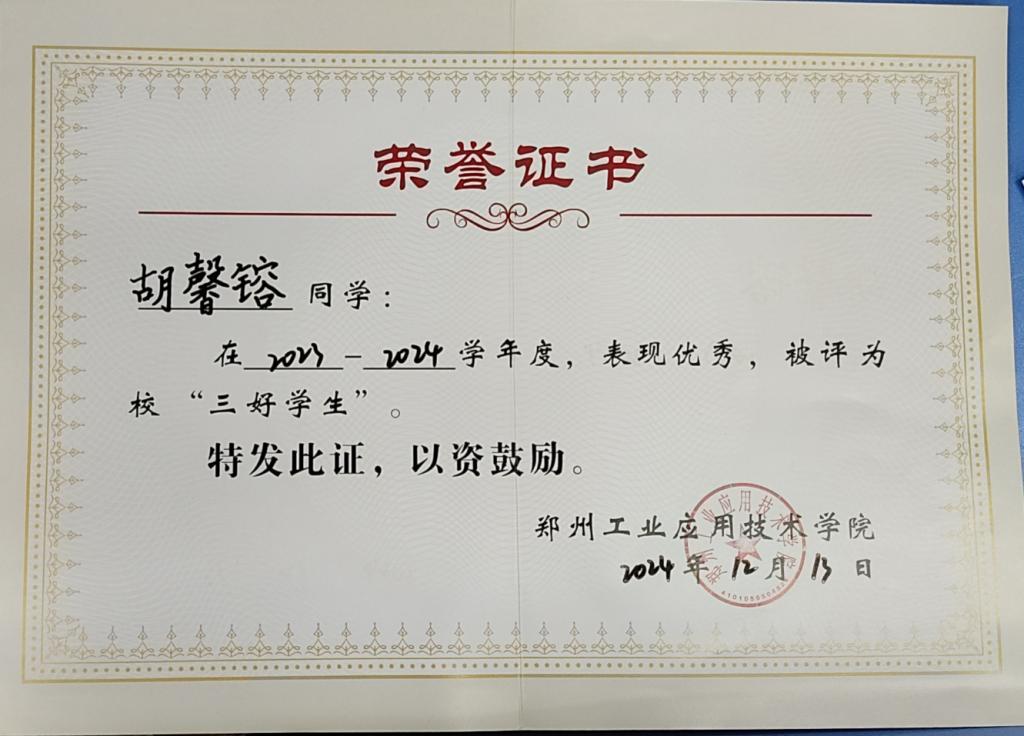 荣誉证书
胡馨镕 同学：
在 2023-2024 学年度，表现优秀，被评为
校“三好学生”。
特发此证，以资鼓励。
郑州工业应用技术学院
2024年12月13日
郑州工业应用技术学院